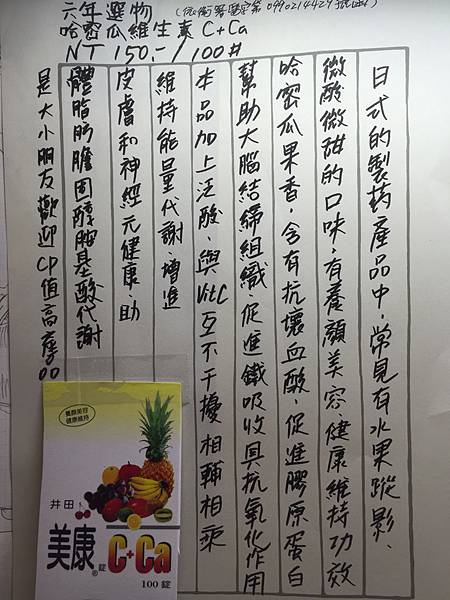 六年選物 (衛部署藥字第0990214429號進)
哈密瓜維生素C+Ca
NT 150.-/100#
日式的製药產品中,常見有水果蹤影、
微酸微甜的口味,有養顏美容、健康維持功效
哈密瓜果香,含有抗壞血酸,促進膠原蛋白
幫助大腦結締組織、促進鐵吸收具抗氧化作用
本品加上泛酸、與VitC互不干擾相輔相乘
維持能量代謝、增進
皮膚和神經元健康、助
體脂肪膽固醇胺基酸代謝
是大小朋友歡迎CP值高產品
養顏美容
健康維持
井田
美康®錠
C+Ca
100錠